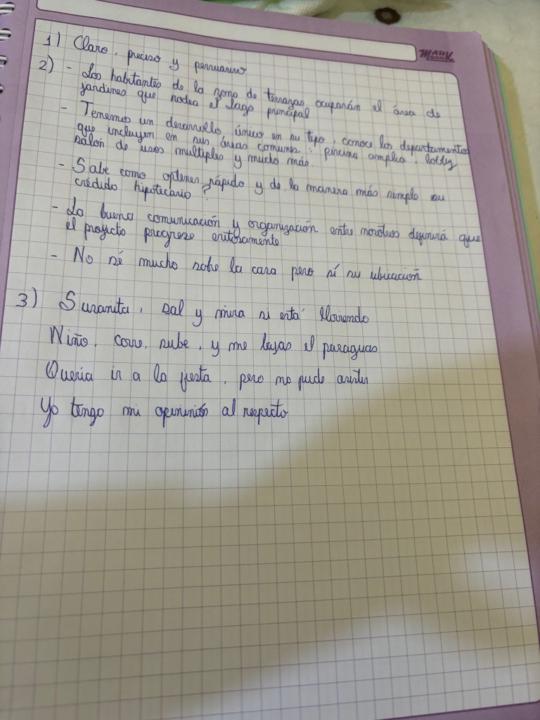 MARK
1) Claro, preciso y persuasivo
2) - Los habitantes de la zona de terrazas ocuparán el área de
jardines que rodea el lago principal
- Tenemos un desarrollo, único en su tipo, conoce los departamentos
que incluyen en sus áreas comunes: piscina amplia, lobby
salón de usos multiples y mucho más
- Sabe como obtener rápido y de la manera más simple su
crédido hipotecario?
- La buena comunicación y organización entre nosotros
el proyecto progrese exitosamente
- No sé mucho sobre la casa pero sí su ubicación
3) Susanita, sal y mira si está llorendo
Niño, corre, sube, y me bajas el paraguas
Queria ir a la fiesta, pero no pude asistir
Yo tengo mi opininión al respecto